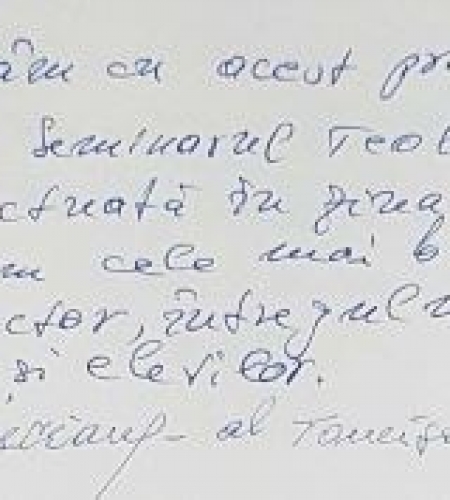 âm cu acest pr
Seminarul Teol
ctuată în ziua
m cele mai b
ctor, întregul
și elevilor.
al Tomis